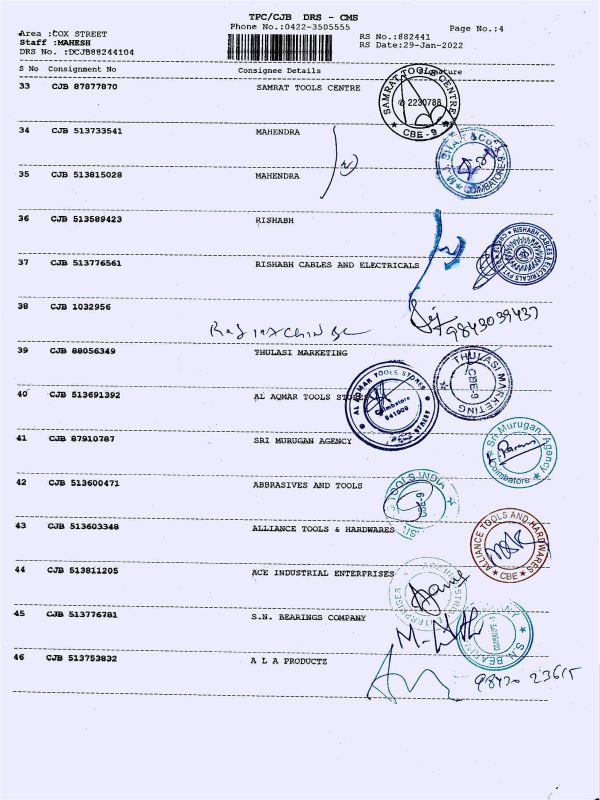 TPC/CJB DRS - CMS
Phone No.:0422-3505555
Page No.:4
Area :COX STREET
RS No.:882441
Staff :MAHESH
RS Date:29-Jan-2022
DRS No. :DCJB88244104
S No Consignment No Consignee Details
33 CJB 87877870 SAMRAT TOOLS CENTRE
SAMRAT TOOLS CENTRE
2230788
CBE - 9
34 CJB 513733541 MAHENDRA
COIMBATORE-9
35 CJB 513815028 MAHENDRA
36 CJB 513589423 RISHABH
RISHABH CABLES & ELECTRICALS PVT LTD
37 CJB 513776561 RISHABH CABLES AND ELECTRICALS
38 CJB 1032956
9843039437
39 CJB 88056349 THULASI MARKETING
THULASI MARKETING
CBE-9
40 CJB 513691392 AL AQMAR TOOLS STORES
AL AQMAR TOOLS STORES
Coimbatore
641009
41 CJB 87910787 SRI MURUGAN AGENCY
Sri Murugan Agency
Coimbatore
42 CJB 513600471 ABBRASIVES AND TOOLS
TOOLS INDIA
CBE-9
43 CJB 513603348 ALLIANCE TOOLS & HARDWARES
ALLIANCE TOOLS AND HARDWARES
CBE
44 CJB 513811205 ACE INDUSTRIAL ENTERPRISES
45 CJB 513776781 S.N. BEARINGS COMPANY
S.N. BEARINGS
46 CJB 513753832 A L A PRODUCTZ
98430 23615